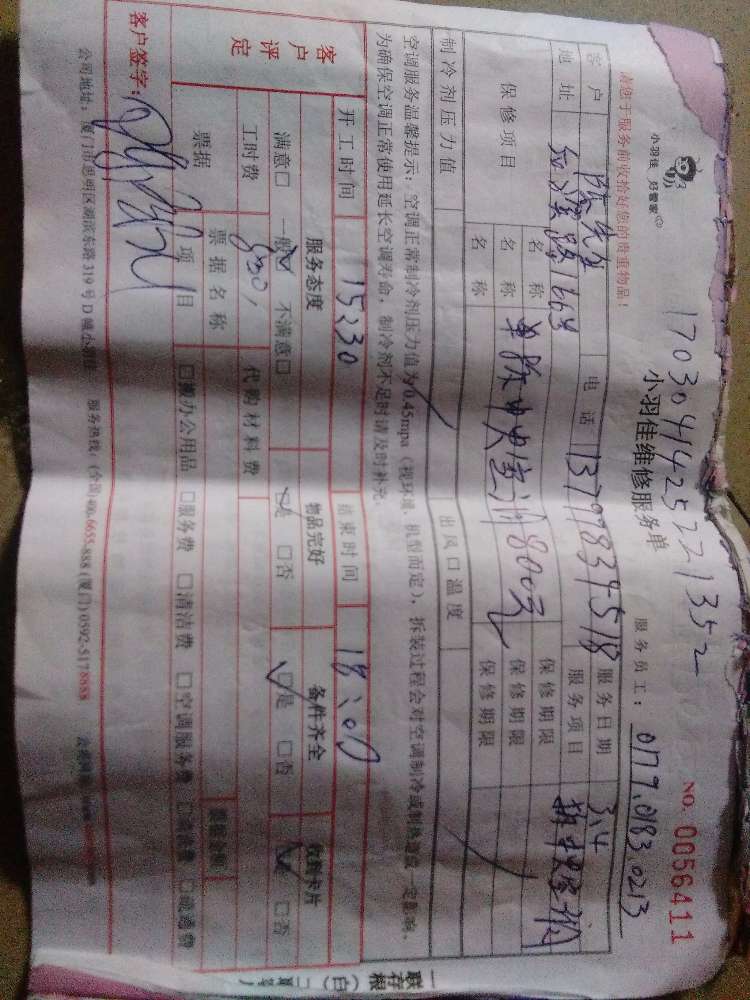 17030414252271352
小羽佳 好管家
小羽佳维修服务单
NO. 0056411
请您于服务前收拾好您的贵重物品！
服务员工：0177.0183.0213
客户 陈先生 电话 13779839518 服务日期 3.4
地址 服务项目
保修项目 名称 保修期限
名称 800元 保修期限
名称 保修期限
制冷剂压力值 出风口温度
空调服务温馨提示：空调正常制冷剂压力值为0.45mpa（视环境、机型而定），拆装过程会对空调制冷或制热造成一定影响，
为确保空调正常使用延长空调寿命，制冷剂不足时请及时补充。
开工时间 15:30 结束时间 18:00
客户评定 服务态度 物品完好 备件齐全 收到卡片
满意□ 一般□ 不满意□ □是 □否 □是 □否 □是 □否
工时费 800, 代购材料费
票据 票据名称
项目 □搬办公用品 □服务费 □清洁费 □空调服务费 □疏通费
客户签字：
公司地址：厦门市思明区湖滨东路319号D幢小羽佳 服务热线：(全国)400-6655-888 (厦门) 0592-5178888
一联存根（白）